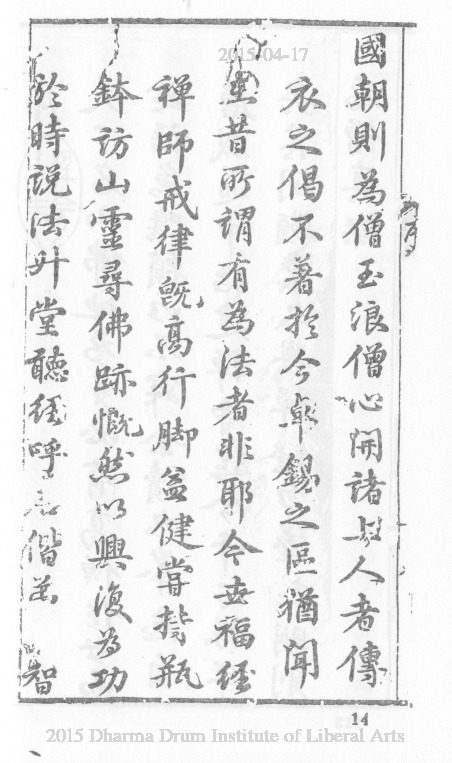 2015-04-17
國朝則為僧玉浪僧心開諸上人者傳
衣之偈不著於今卓錫之區猶聞
昔所謂有為法者非耶今世福經
禪師戒律既高行脚益健嘗携瓶
鉢訪山靈尋佛跡慨然以興復為功
於時說法升堂聽經呼石偕 智
14
2015 Dharma Drum Institute of Liberal Arts